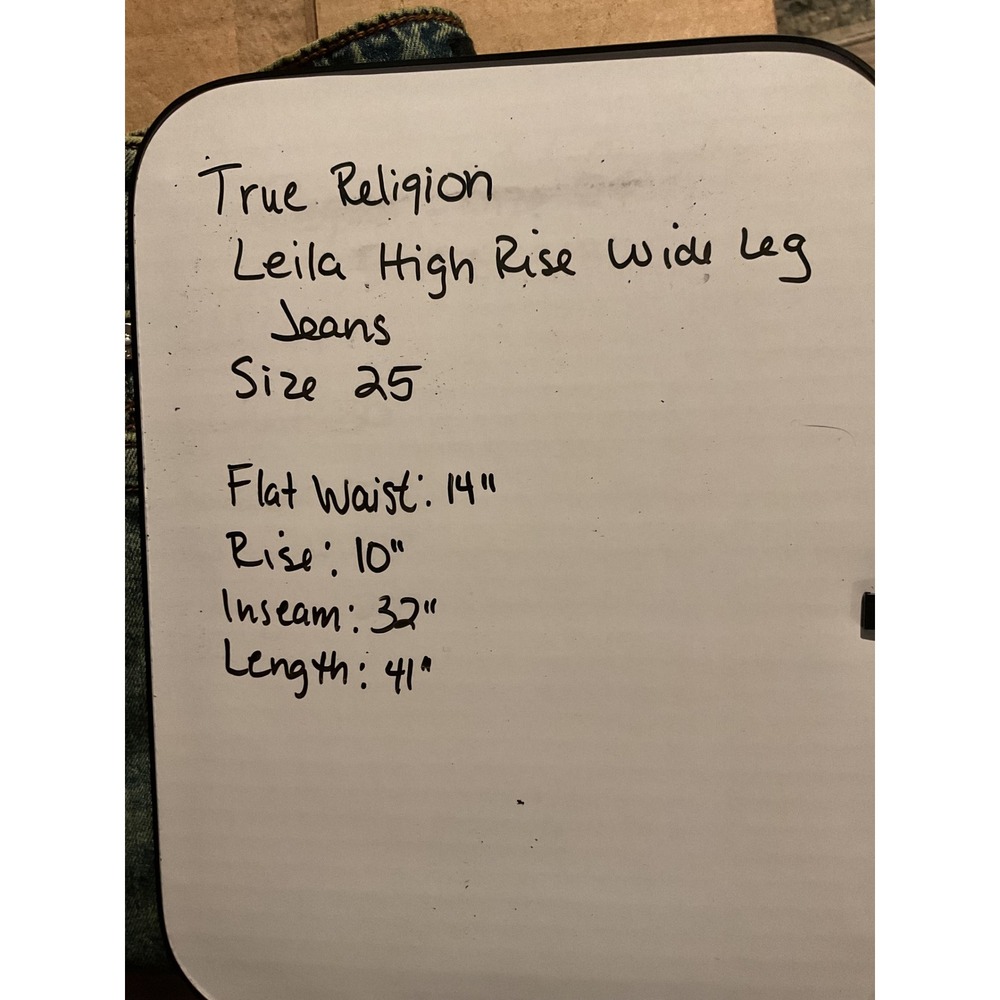 True Religion
Leila High Rise Wide Leg
Jeans
Size 25
Flat Waist: 14"
Rise: 10"
Inseam: 32"
Length: 41"